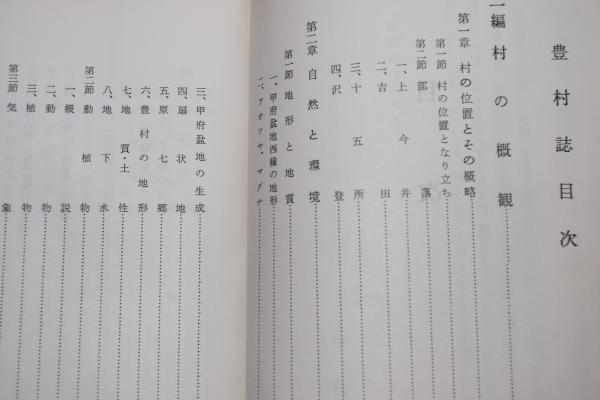 豊村誌目次
一編 村の概観
第一章 村の位置とその概略
第一節 村の位置となり立ち
第二節 部落
一、上今井
二、吉田
三、十五所
四、沢登
第二章 自然と環境
第一節 地形と地質
一、甲府盆地西縁の地形
二、フオツサ、マグナ
三、甲府盆地の生成
四、扇状地
五、原七郷
六、豊村の地形
七、地質・土性
八、地下水
第二節 動植物
一、概説
二、動物
三、植物
第三節 気象